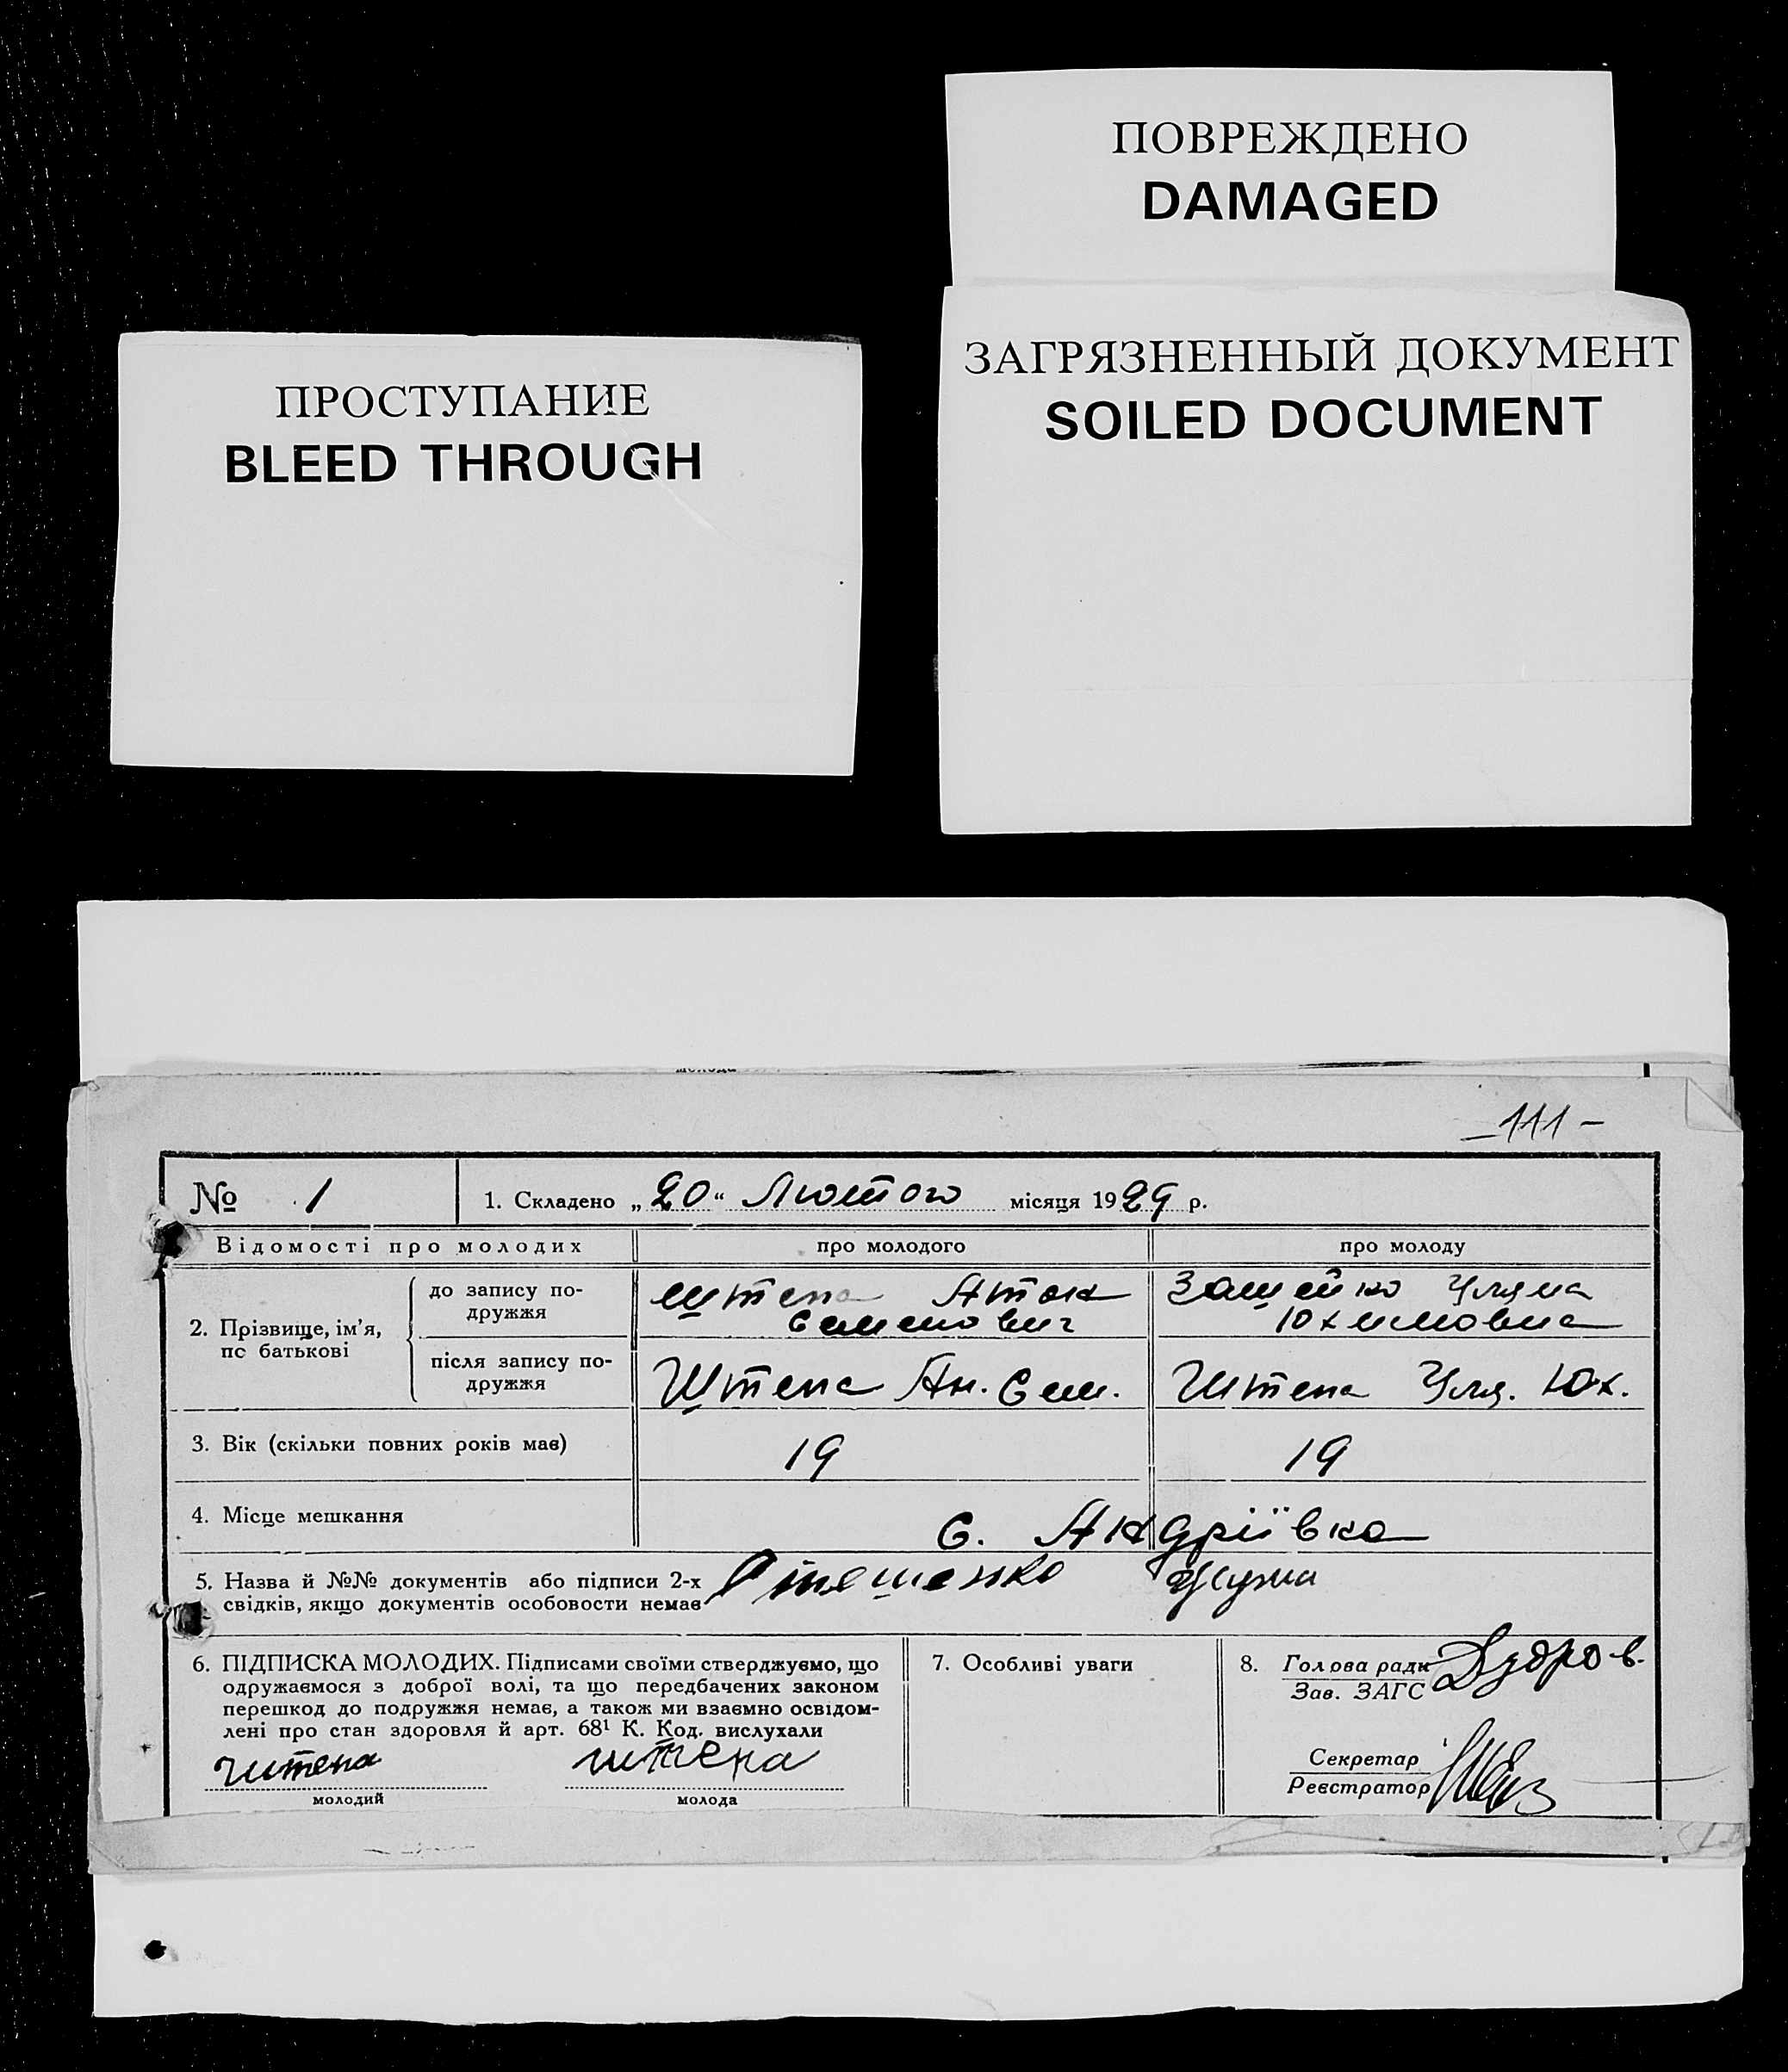 ПОВРЕЖДЕНО
DAMAGED
ЗАГРЯЗНЕННЫЙ ДОКУМЕНТ
SOILED DOCUMENT
ПРОСТУПАНИЕ
BLEED THROUGH
– 111 –
№ 1
1. Складено „20“ Лютого місяця 1929 р.
Відомості про молодих
про молодого
про молоду
2. Прізвище, ім’я, по батькові
до запису подружжя
Штепа Антон
Семенович
Уляна
Юхимовна
після запису подружжя
Штепа Ан. Сем.
Штепа Уля. Юх.
3. Вік (скільки повних років має)
19
19
4. Місце мешкання
С. Андріївка
5. Назва й №№ документів або підписи 2-х
свідків, якщо документів особовости немає
6. ПІДПИСКА МОЛОДИХ. Підписами своїми стверджуємо, що
одружаємося з доброї волі, та що передбачених законом
перешкод до подружжя немає, а також ми взаємно освідом-
лені про стан здоровля й арт. 68¹ К. Код. вислухали
штепа
штепа
молодий
молода
7. Особливі уваги
8. Голова ради
Зав. ЗАГС
Секретар
Реєстратор